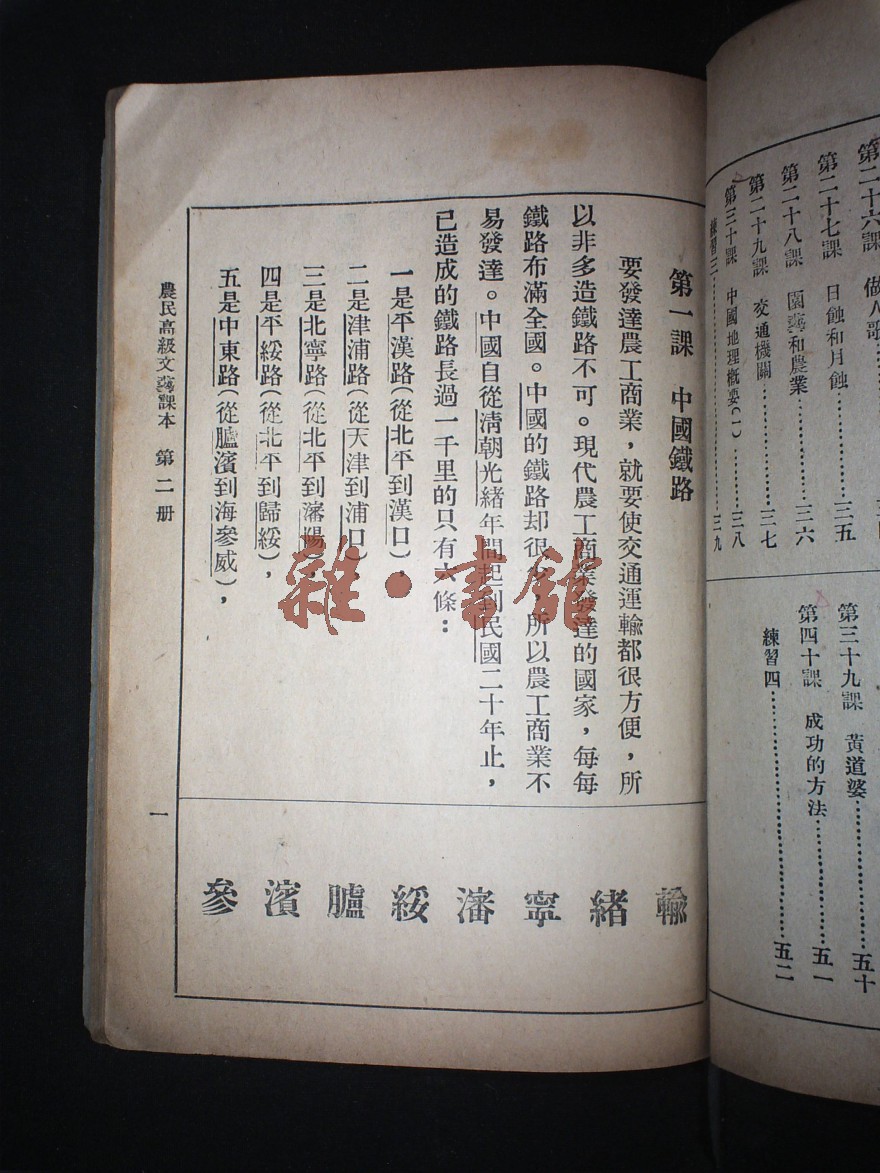 第二十六課　做人歌
第二十七課　日蝕和月蝕…………三五
第二十八課　園藝和農業…………三六
第二十九課　交通機關…………三七
第三十課　中國地理概要(一)…………三八
練習三…………三九
第三十九課　黃道婆…………五十
第四十課　成功的方法…………五一
練習四…………五二
第一課　中國鐵路
要發達農工商業，就要使交通運輸都很方便，所
以非多造鐵路不可。現代農工商業發達的國家，每每
鐵路布滿全國。中國的鐵路却很少，所以農工商業不
易發達。中國自從清朝光緒年間起到民國二十年止，
已造成的鐵路長過一千里的只有六條：
一是平漢路(從北平到漢口)，
二是津浦路(從天津到浦口)，
三是北寧路(從北平到瀋陽)，
四是平綏路(從北平到歸綏)，
五是中東路(從臚濱到海參威)，
輸緒寧瀋綏臚濱參
農民高級文藝課本　第二册
一
雜·書館